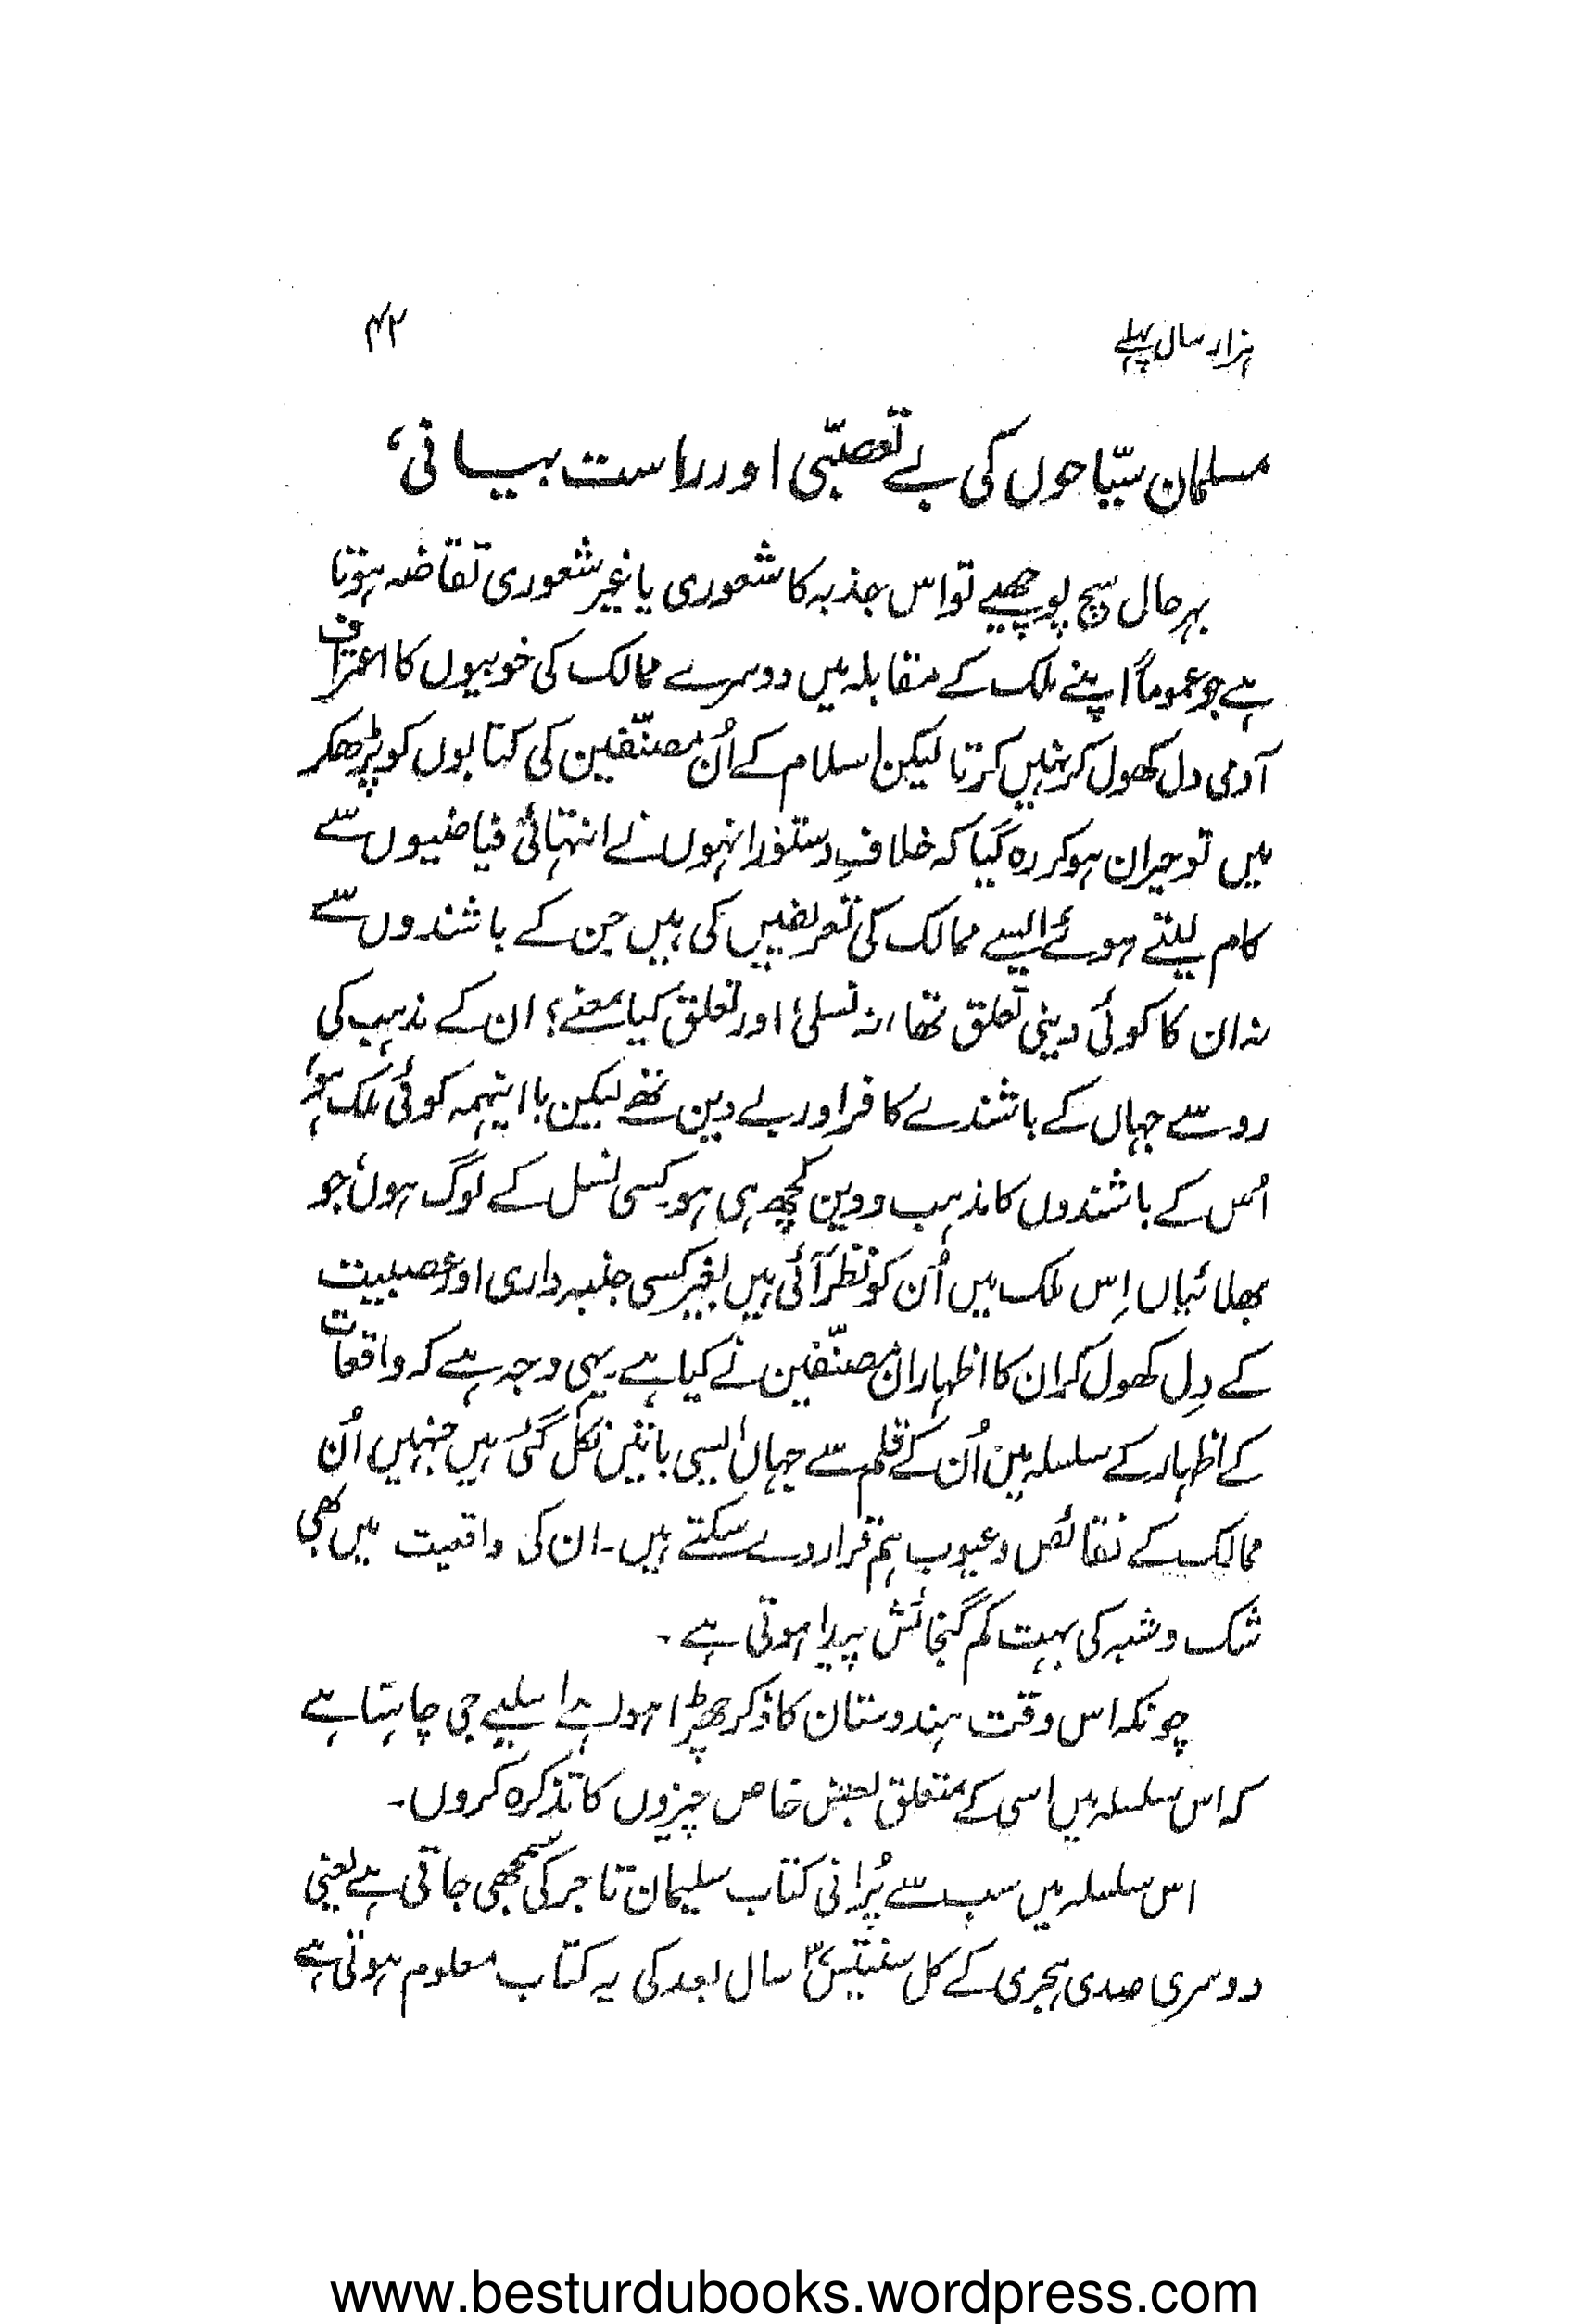 ہزار سال پہلے
۴۲
مسلمان سیّاحوں کی بے تعصبّی اور راست بیانی،
بہرحال سچ پوچھیے تو اس جذبہ کا شعوری یا غیر شعوری تقاضہ ہوتا
ہے جو عموماً اپنے ملک کے مقابلہ میں دوسرے ممالک کی خوبیوں کا اعتراف
آدمی دل کھول کر نہیں کرتا لیکن اسلام کے اُن مصنّفین کی کتابوں کو پڑھکر
میں تو حیران ہو کر رہ گیا کہ خلافِ دستور انہوں نے انتہائی فیاضیوں سے
کام لیتے ہوئے ایسے ممالک کی تعریفیں کی ہیں جن کے باشندوں سے
نہ ان کا کوئی دینی تعلق تھا، نہ نسلی، اور تعلق کیا معنے؟ ان کے مذہب کی
رو سے جہاں کے باشندے کافر اور بے دین تھے لیکن بااینہمہ کوئی ملک ہو،
اُس کے باشندوں کا مذہب و دین کچھ ہی ہو۔ کسی نسل کے لوگ ہوں، جو
بھلائیاں اِس ملک میں اُن کو نظر آئی ہیں بغیر کسی جنبہ داری اور عصبیت
کے دِل کھول کر ان کا اظہار ان مصنّفین نے کیا ہے۔ یہی وجہ ہے کہ واقعات
کے اظہار کے سلسلہ میں اُن کے قلم سے جہاں ایسی باتیں نکل گئی ہیں جنہیں اُن
ممالک کے نقائص و عیوب ہم قرار دے سکتے ہیں۔ ان کی واقعیت میں بھی
شک و شبہ کی بہت کم گنجائش پیدا ہوتی ہے۔
چونکہ اس وقت ہندوستان کا ذکر چھڑا ہوا ہے اسلیے جی چاہتا ہے
کہ اس سلسلہ میں اسی کے متعلق بعض خاص چیزوں کا تذکرہ کروں۔
اس سلسلہ میں سب سے پُرانی کتاب سلیمان تاجر کی سمجھی جاتی ہے یعنی
دوسری صدی ہجری کے کل سنتیس سال بعد کی یہ کتاب معلوم ہوتی ہے
www.besturdubooks.wordpress.com